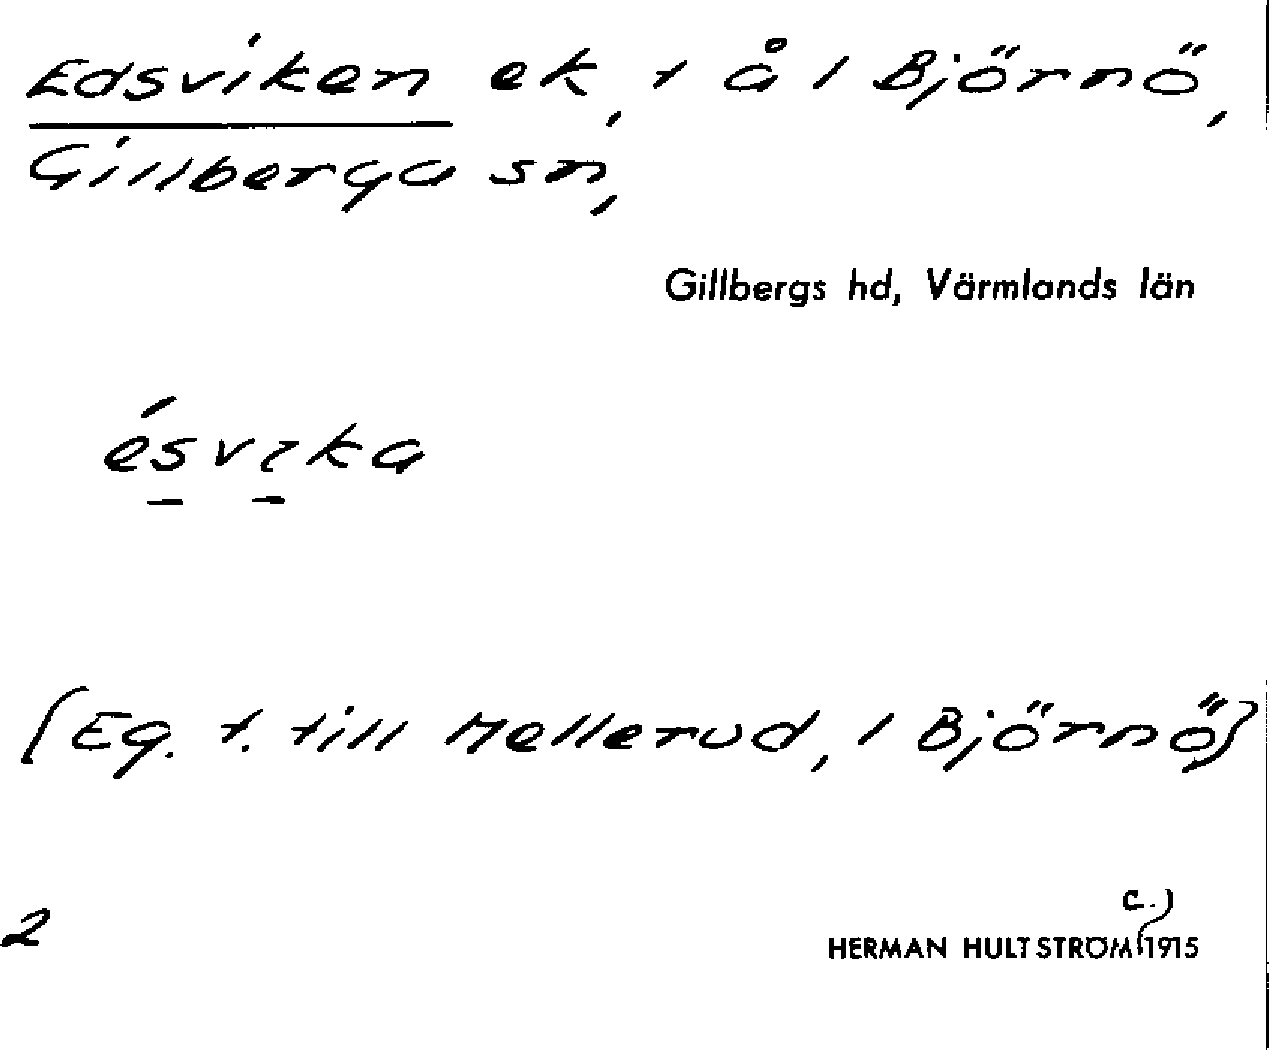 Edsviken ek, t å l Björnö,
Gillberga sn,
Gillbergs hd, Värmlands län
ésvıka
(Eg. t. till Mellerud, l Björnö,)
2
c.)
HERMAN HULTSTRÖM 1915